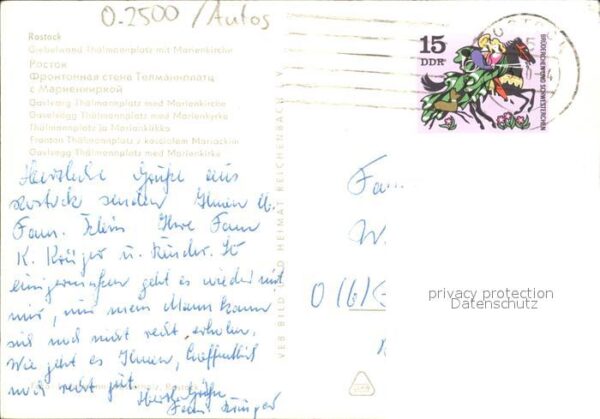 0.2500 / Autos
Rostock
Giebelwand Thälmannplatz mit Marienkirche
Росток
Фронтонная стена Тельманплатц
с Мариенкиркой
Gavlvæg Thälmannplatz med Marienkirche
Gavelvägg Thälmannplatz med Marienkyrka
Thälmannplatz ja Marienkirkko
Fronton Thälmannplatz z kościołem Mariackim
Gavlvegg Thälmannplatz med Marienkirke
Herzliche Grüße aus
Rostock senden Ihnen u.
Fam. Ihre Fam
K. Krüger u. Kinder. So
einigermaßen geht es wieder mit
mir, nur mein Mann kann
sich noch nicht recht erholen.
Wie geht es Ihnen, hoffentlich
noch recht gut.
Herzl. Grüße
Fam. Krüger
VEB BILD UND HEIMAT REICHENBACH
15
DDR
BRÜDERCHEN UND SCHWESTERCHEN
Fam.
W.
privacy protection
Datenschutz